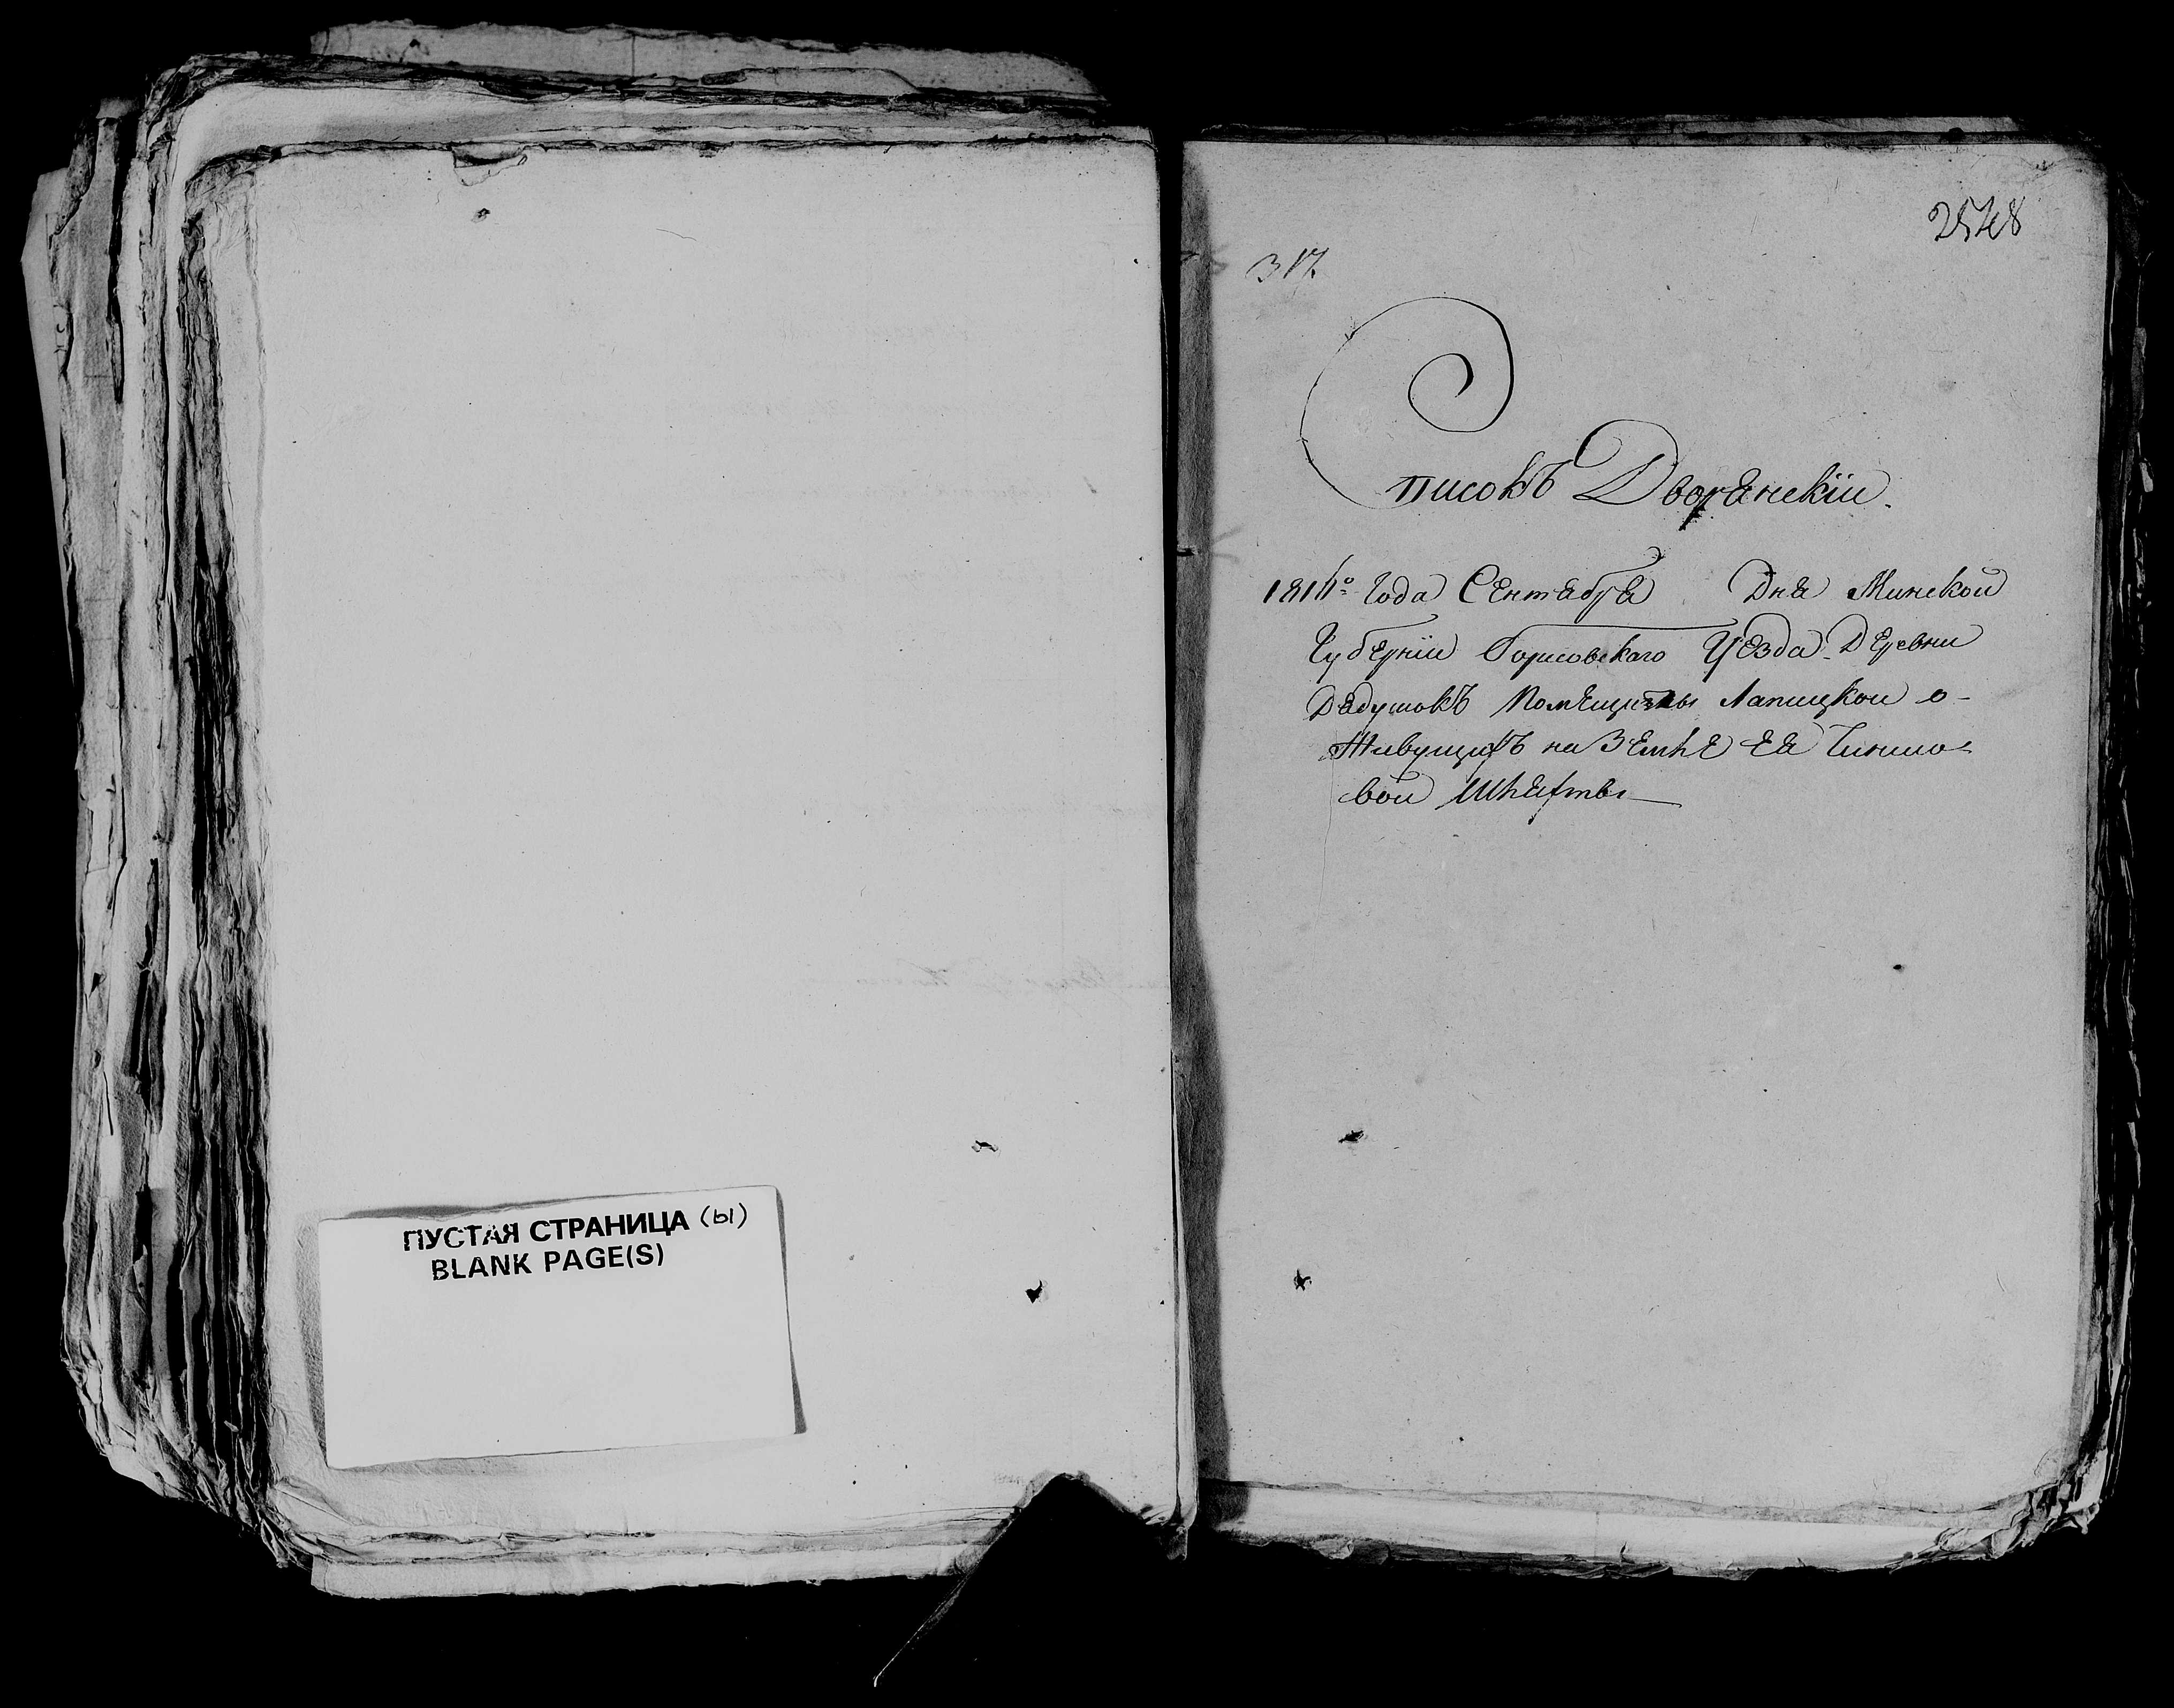 ПУСТАЯ СТРАНИЦА (Ы)
BLANK PAGE(S)
2548
317.
Списокъ Дворянскїи.
181 года Сентября Дня Минской
Губернїи Борисовского Уезда Деревни
Дядушокъ Помещицы Лапицкои о
Живущихъ на Земле Ея Чиншо-
вои Шляхты